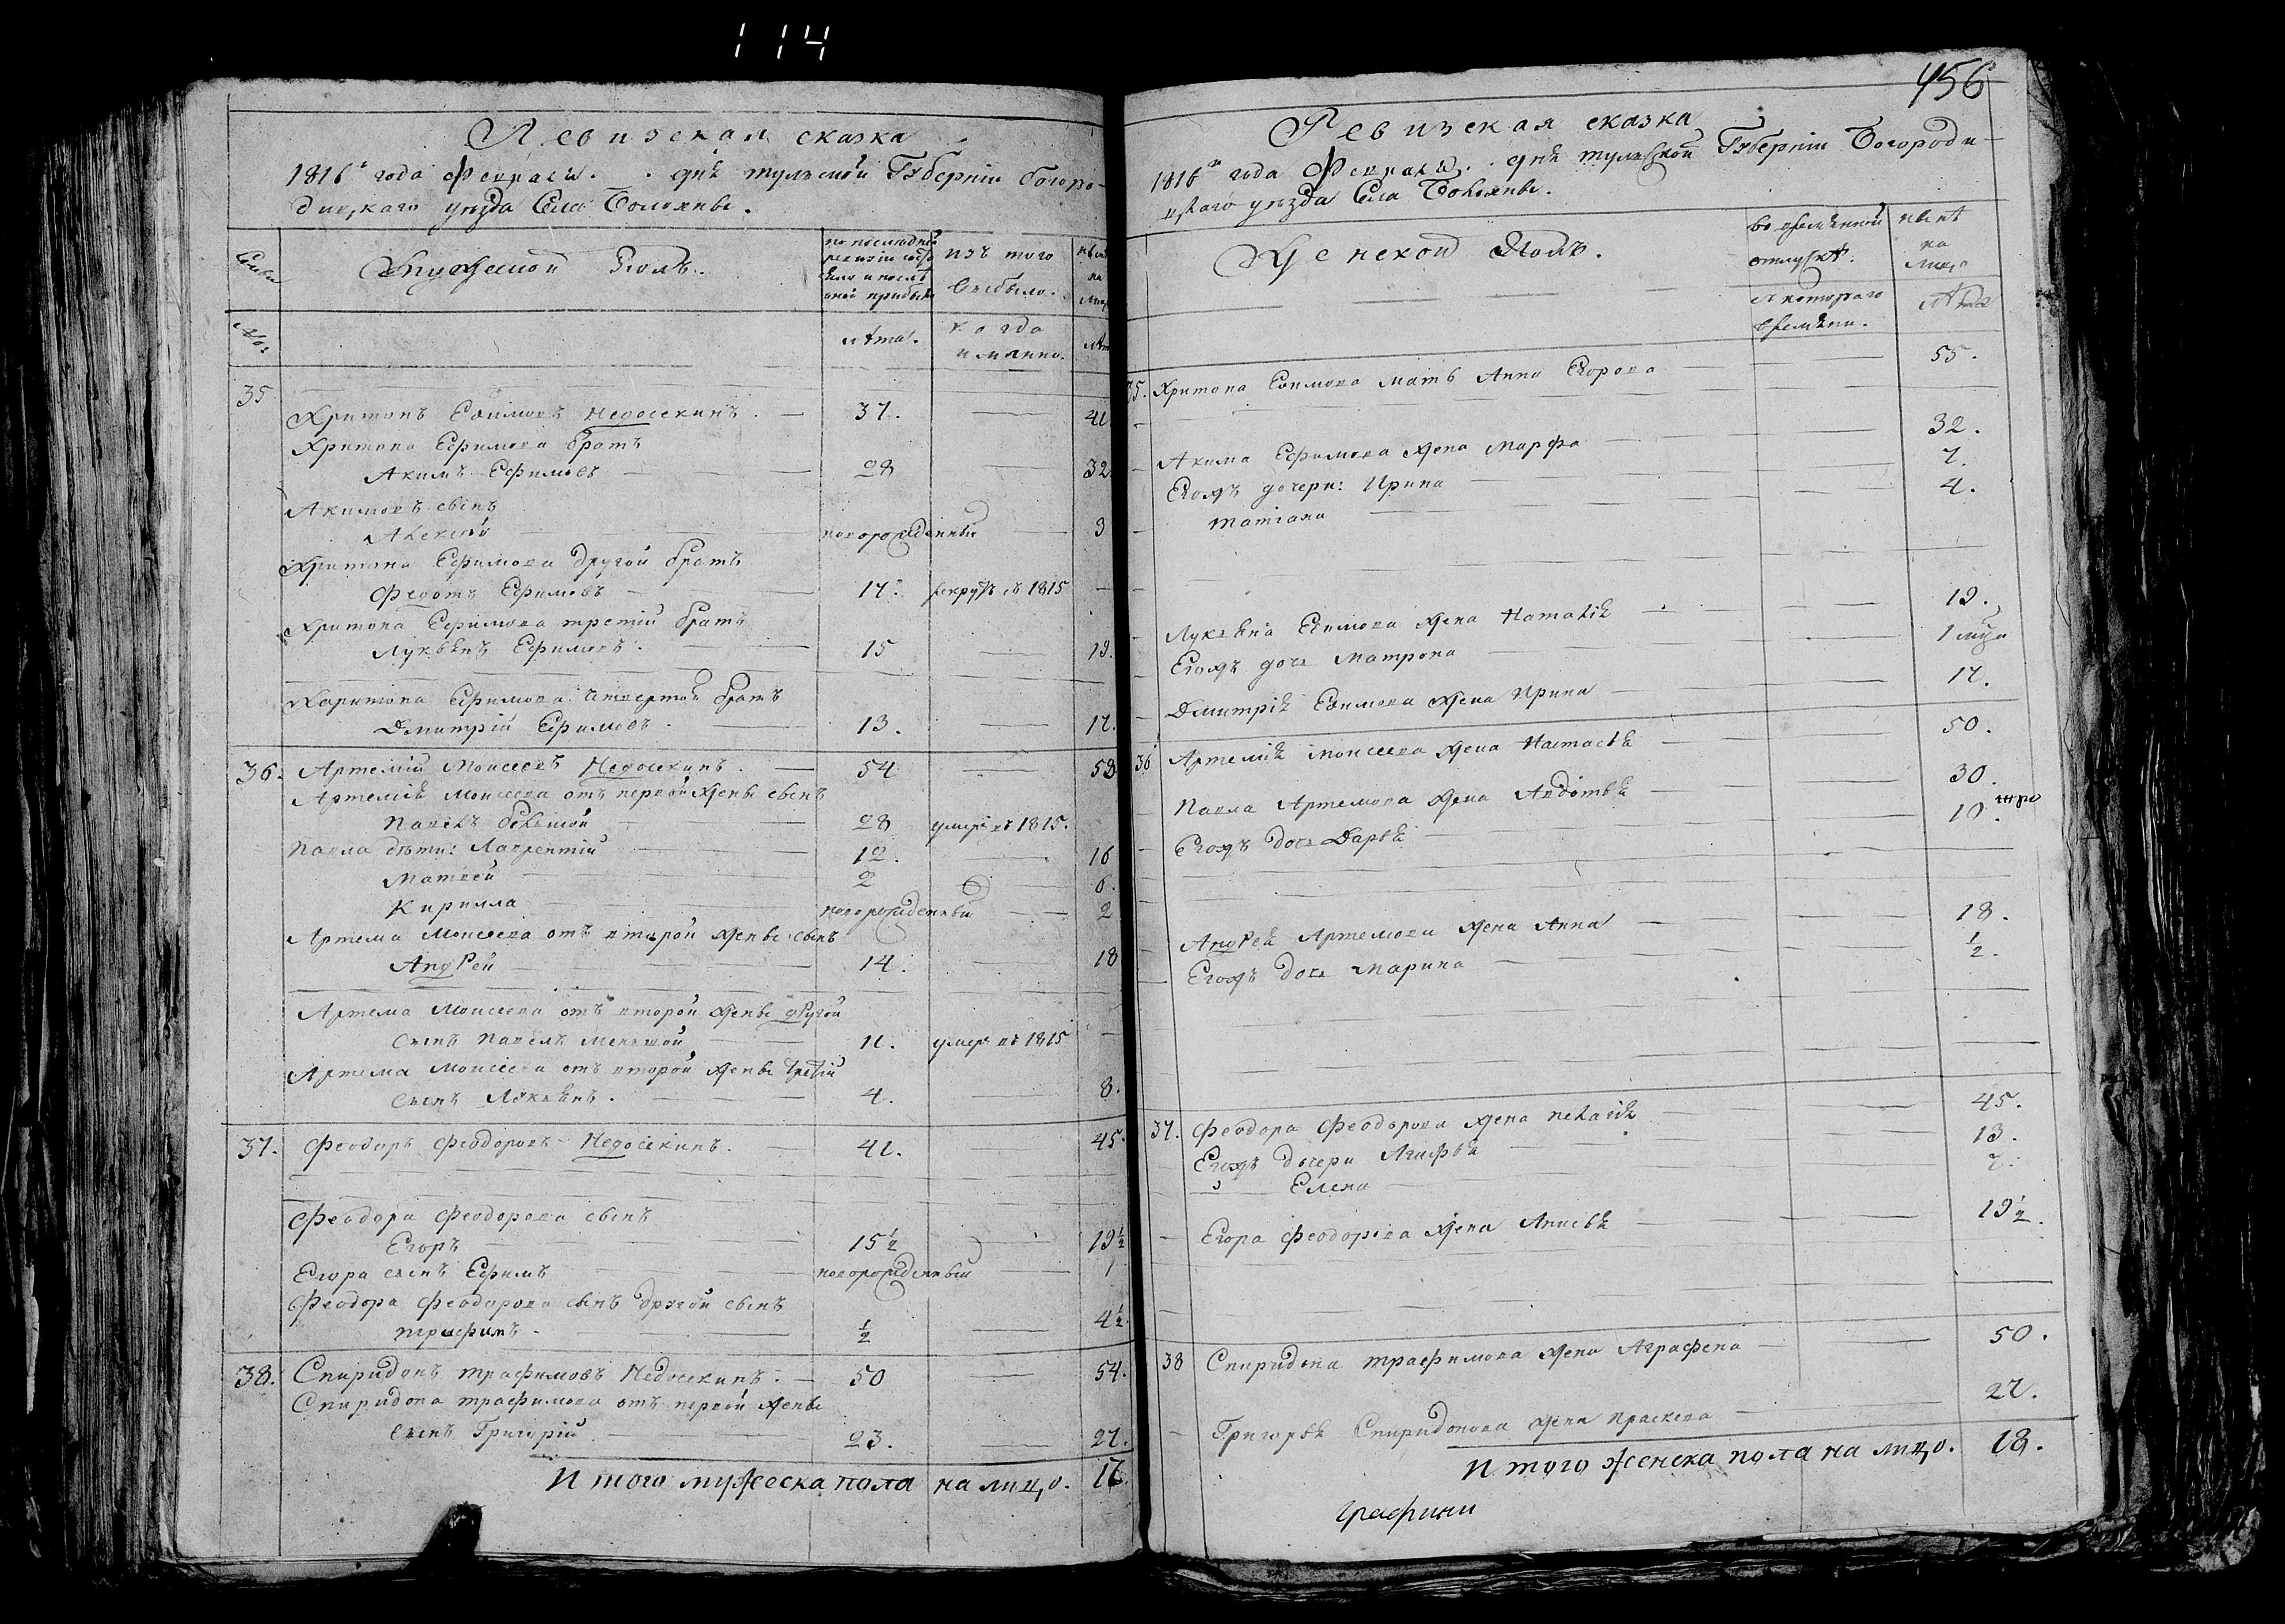 114
Ревизская сказка
1816го года Февраля. . дня тульской Губернiи богоро-
дицкаго уезда Села
Семьи
Мужеской Полъ.
по последней ревизiи состояло и после оной прибыло
изъ того выбыло.
ныне на лицо
лета.
когда имянно.
лета
35
Харитонъ Ефимовъ Недосекинъ. 37. 41
Харитона Ефимова братъ
Акимъ Ефимовъ 28 32
Акимовъ сынъ
Алексей новорожденный 3
Харитона Ефимова другой братъ
Федотъ Ефимовъ 17. рекрутъ въ 1815
Харитона Ефимова третiй братъ
Лукьянъ Ефимовъ. 15 19.
Харитона Ефимова четвертой братъ
Дмитрiй Ефимовъ. 13. 17.
36. Артемiй Моисеевъ Недосекинъ. 54 58
Артемiя Моисеева отъ первой жены сынъ
Павелъ большой 28 умеръ въ 1815.
Павла дети: Лаврентiй 12. 16
Матвей 2 6.
Кирилла новорожденный 2
Артема Моисеева отъ второй жены сынъ
Андрей 14. 18
Артема Моисеева отъ второй жены другой
сынъ Павелъ меньшой 11. умеръ въ 1815
Артема Моисеева отъ второй жены третiй
сынъ Лукьянъ. 4. 8.
37. Феодоръ Феодоровъ Недосекинъ. 41. 45.
Феодора Феодорова сынъ
Егоръ 15½ 19½
Егора сынъ Ефимъ новорожденный 1
Феодора Феодорова сынъ другой сынъ
Трафимъ. ½ 4½.
38. Спиридонъ Трафимовъ Недосекинъ. 50 54.
Спиридона Трафимова отъ первой жены
сынъ Григорiй. 23. 27.
Итого мужеска пола на лицо. 17.
456
Ревизская сказка
1816го года Февраля. . дня тульской Губернiи Богороди-
цкаго уезда Села
Женской Полъ.
во временной отлучке.
ныне на лицо
с котораго времени.
лета
35. Харитона Ефимова мать Анна Егорова 55.
Акима Ефимова жена Марфа 32.
Егожъ дочери: Ирина 7.
Татiана 4.
Лукьяна Ефимова жена Наталiя 19.
Егожъ дочь Матрона 1 меца
Дмитрiя Ефимова жена Ирина 17.
36 Артемiя Моисеева жена Настасья 50.
Павла Артемова жена Авдотья 30.
Егожъ дочь Дарья 10.
Андрея Артемова жена Анна 18.
Егожъ дочь Марина ½.
37. Феодора Феодорова жена Пелагiя 45.
Егожъ дочери Агафья 13.
Елена 7.
Егора Феодорова жена Анисья 19½.
38 Спиридона Трафимова жена Аграфена 50.
Григорья Спиридонова жена Праскева 27.
Итого женска пола на лицо. 18.
Графини